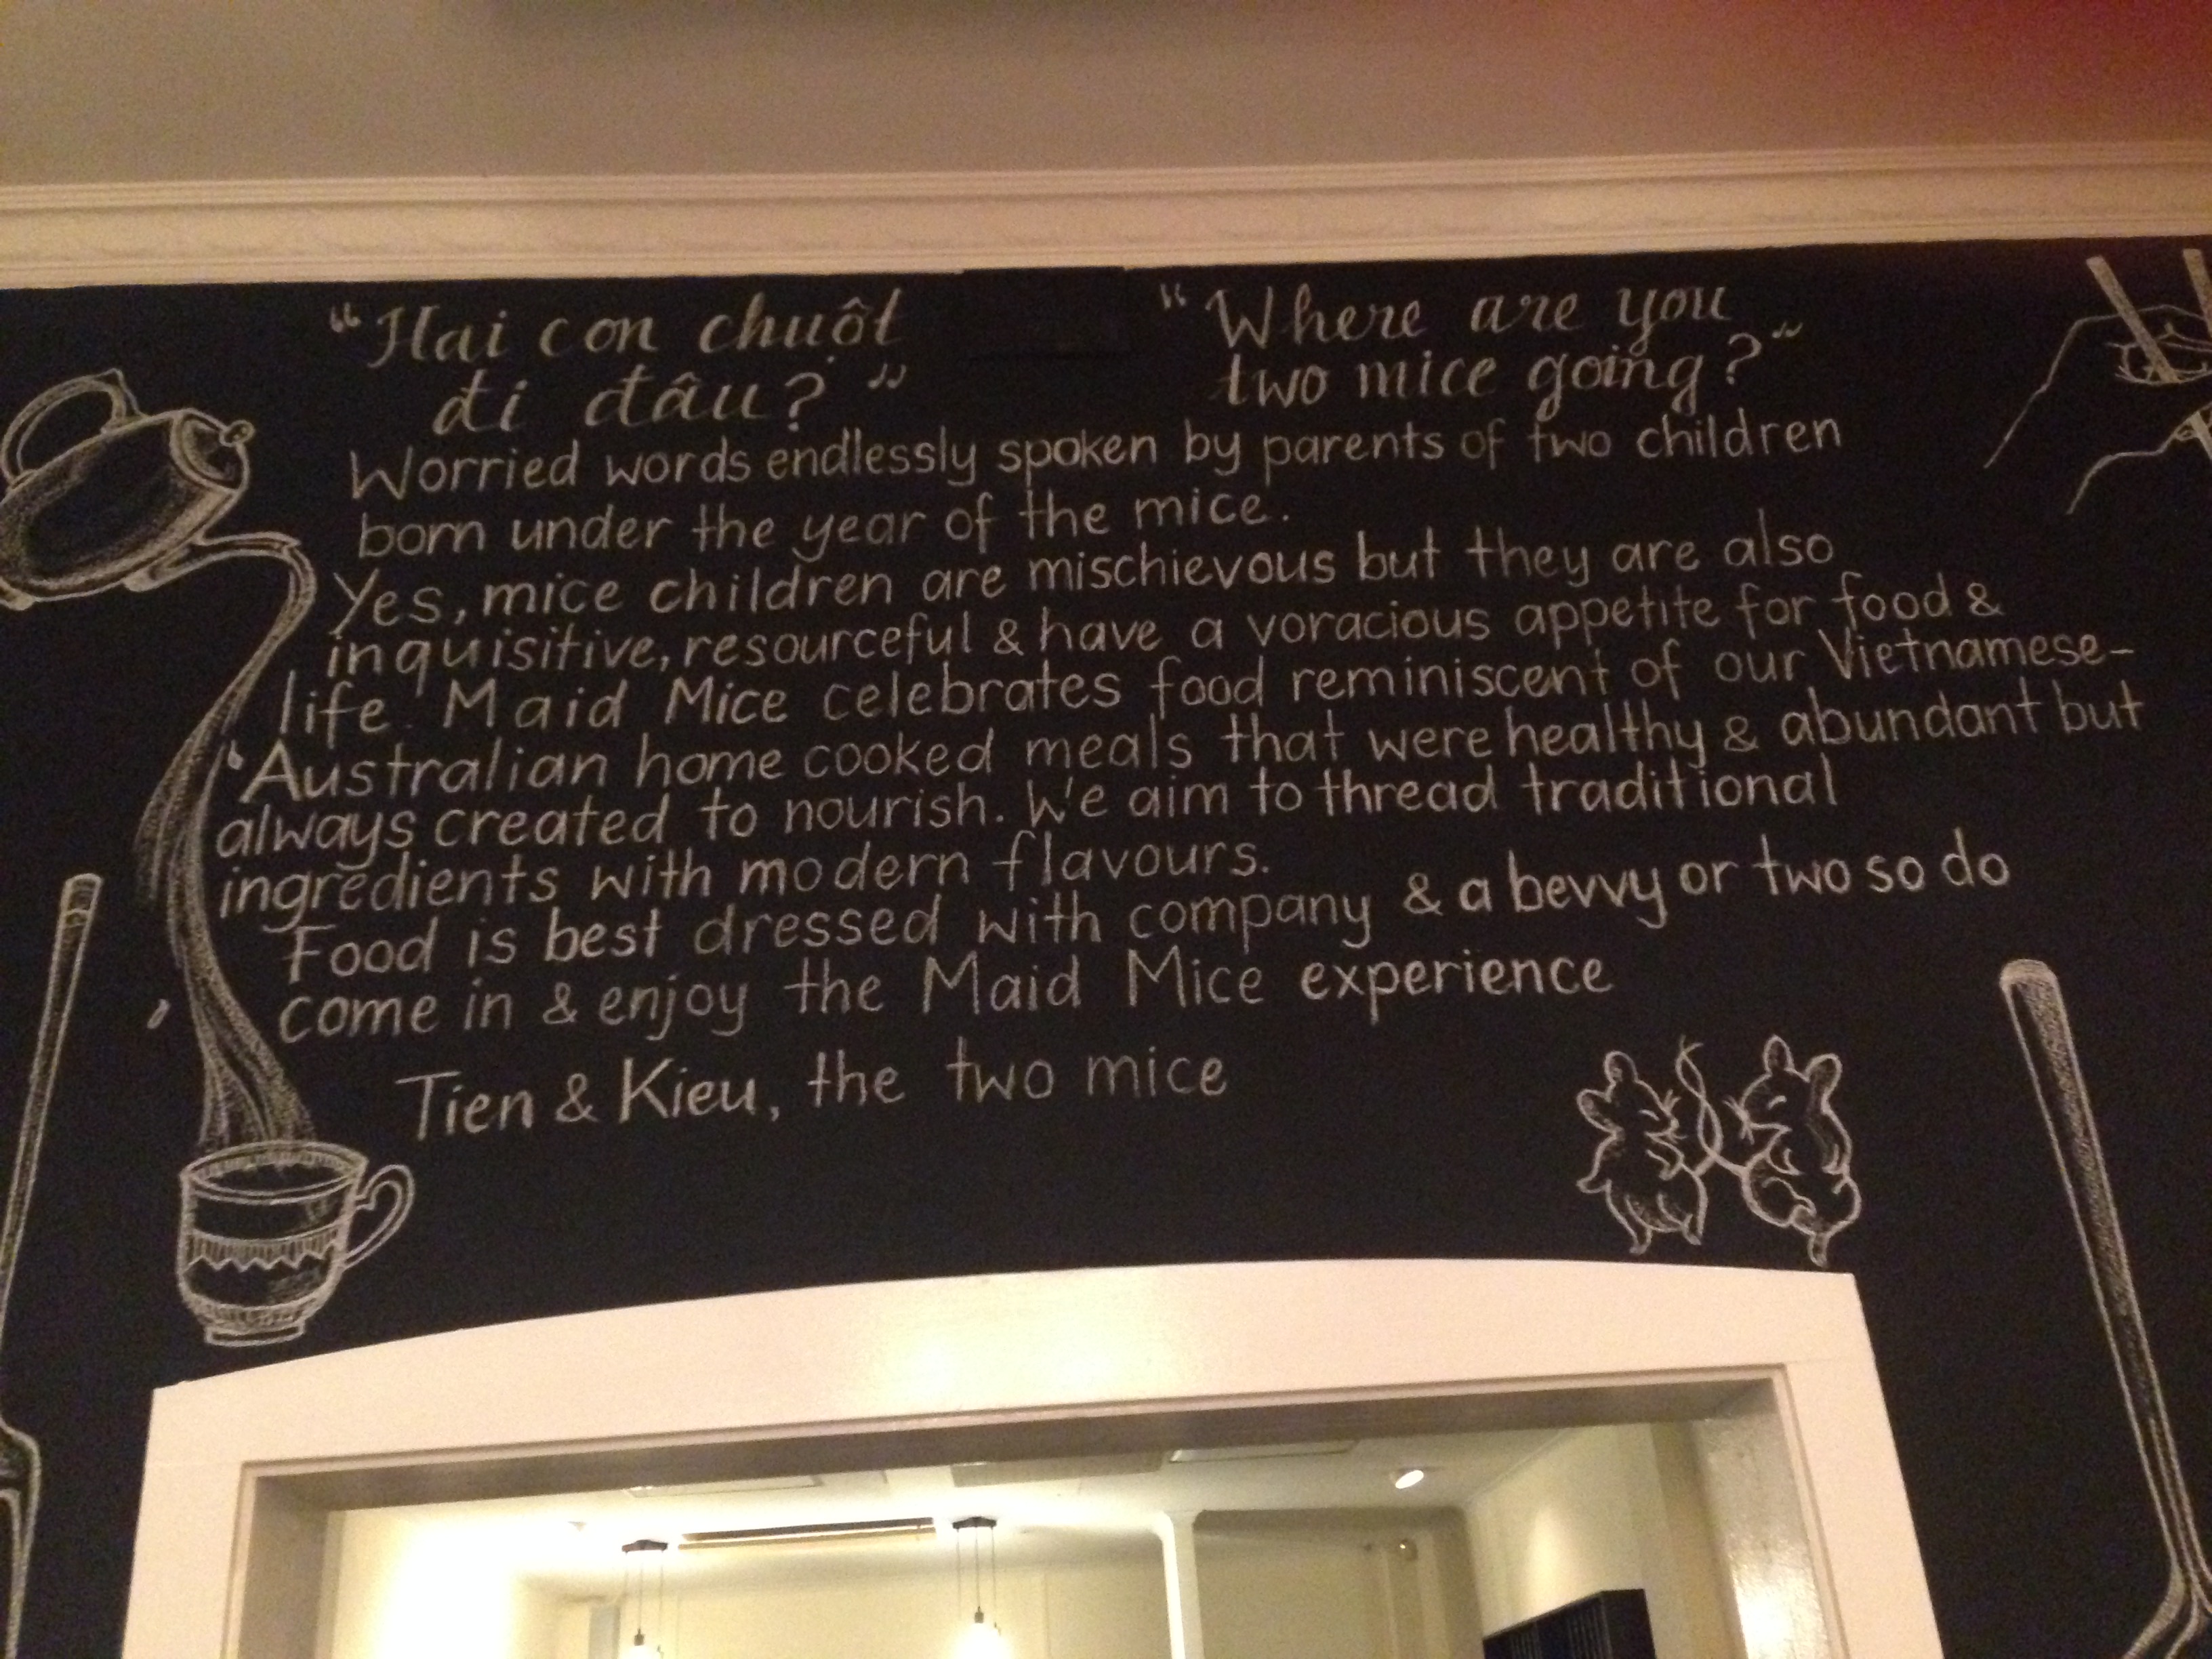 "Hai con chuột
đi đâu?"
"Where are you
two mice going?"
Worried words endlessly spoken by parents of two children
born under the year of the mice.
Yes, mice children are mischievous but they are also
inquisitive, resourceful & have a voracious appetite for food &
life. Maid Mice celebrates food reminiscent of our Vietnamese-
Australian home cooked meals that were healthy & abundant but
always created to nourish. We aim to thread traditional
ingredients with modern flavours.
Food is best dressed with company & a bevvy or two so do
come in & enjoy the Maid Mice experience
Tien & Kieu, the two mice